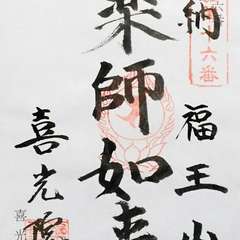 六番
納
福王山
薬師如来
喜光院
喜光